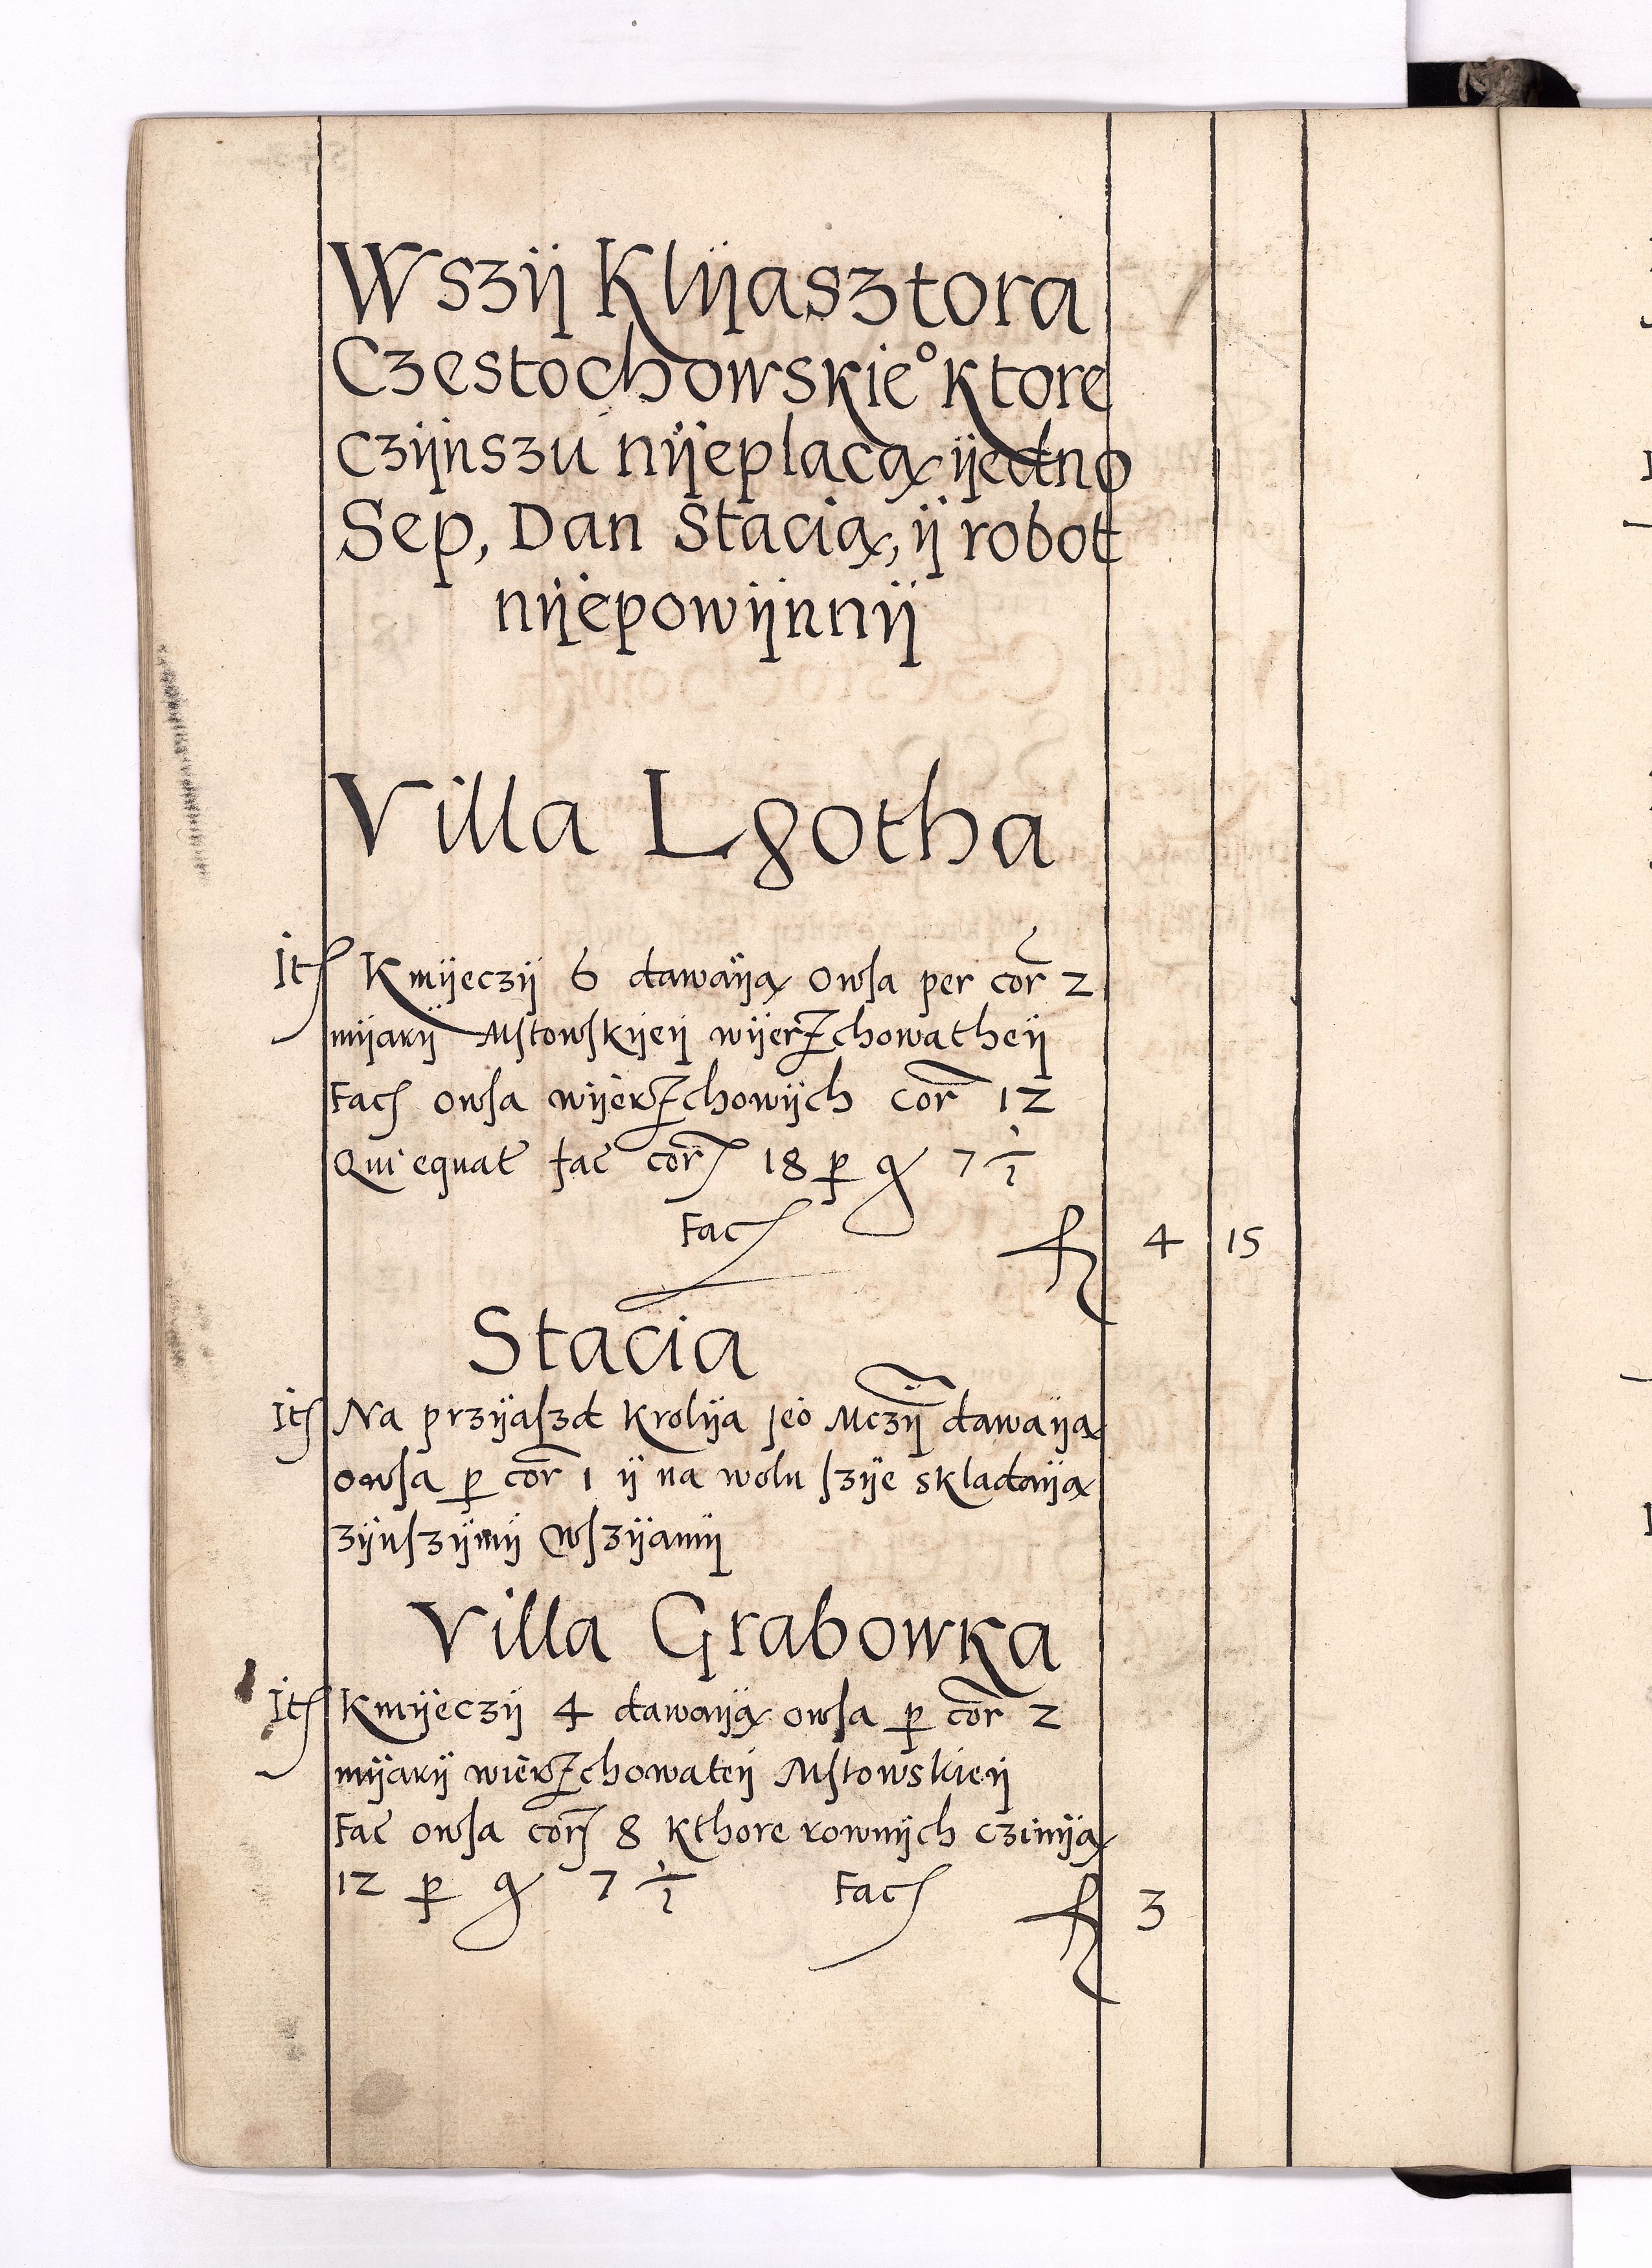 Wszÿ Klÿasztora
Czestochowskie° ktore
czÿnszu nÿeplacą ÿedno
Sep, Dan Stacią, ÿ robot
nÿepowÿnnÿ
Villa Lgotha
Itꝭ Kmÿeczÿ 6 dawaÿą Owſa per cor̃ 2
mÿarÿ Mſtowſkÿeÿ wÿerzchowatheÿ
Facꝭ owſa wÿerzchowÿch cor̃ 12
Qui equat̃ fac̃ cor̃ 18 ꝑ g 7 1/2
Facꝭ fl 4 15
Stacia
Itꝭ Na przÿaſzd Krolÿa jeo Mczÿ dawaÿą
owſa ꝑ cor̃ 1 ÿ na wolu ſzÿe skladaÿą
zÿnſzÿmÿ wſzÿamÿ
Villa Grabowka
Itꝭ Kmÿeczÿ 4 dawaÿą owſa ꝑ cor̃ 2
mÿarÿ wierzchowateÿ Mſtowskieÿ
Fac̃ owſa cor̃ 8 kthore rownÿch czinÿą
12 ꝑ g 7 1/2 Facꝭ fl 3